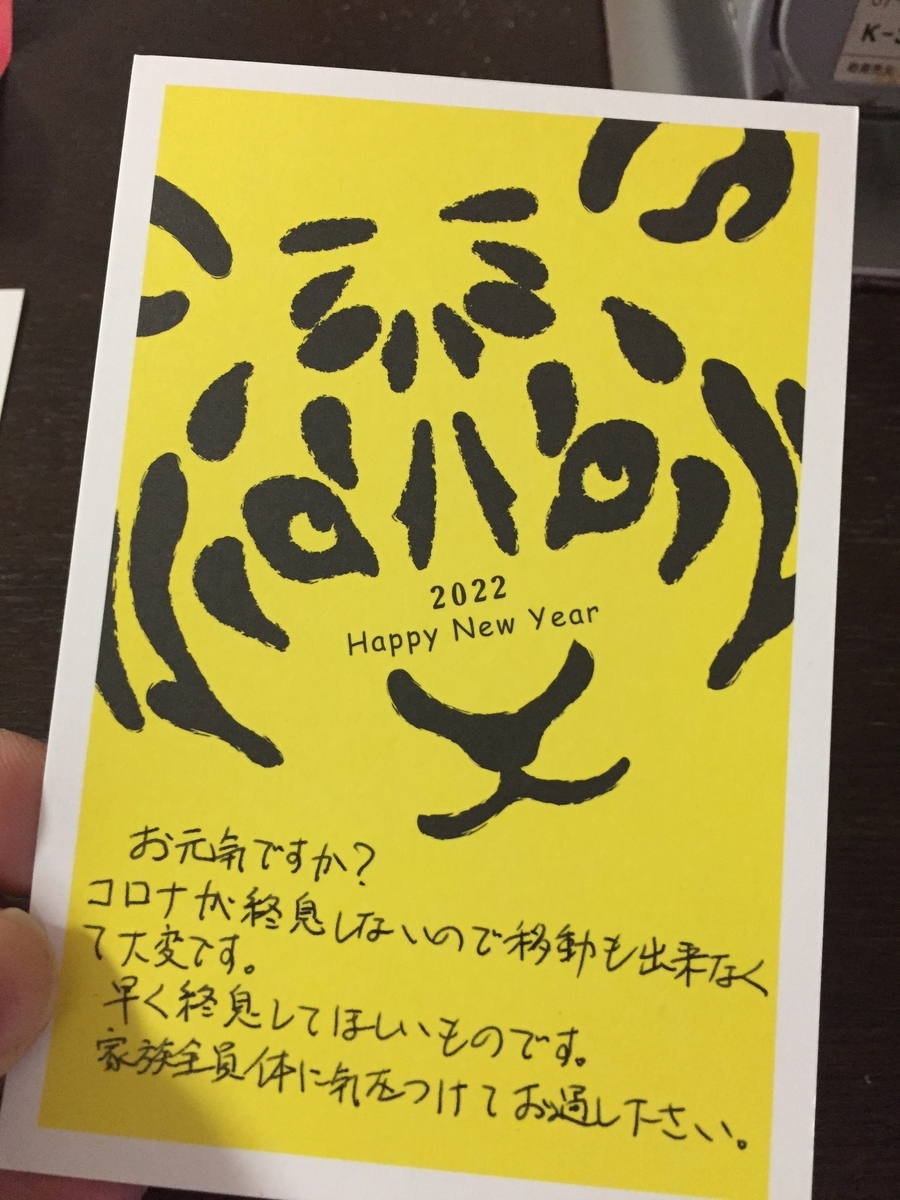 K-
2022
Happy New Year
お元気ですか？
コロナが終息しないので移動も出来なく
て大変です。
早く終息してほしいものです。
家族全員体に気をつけてお過し下さい。